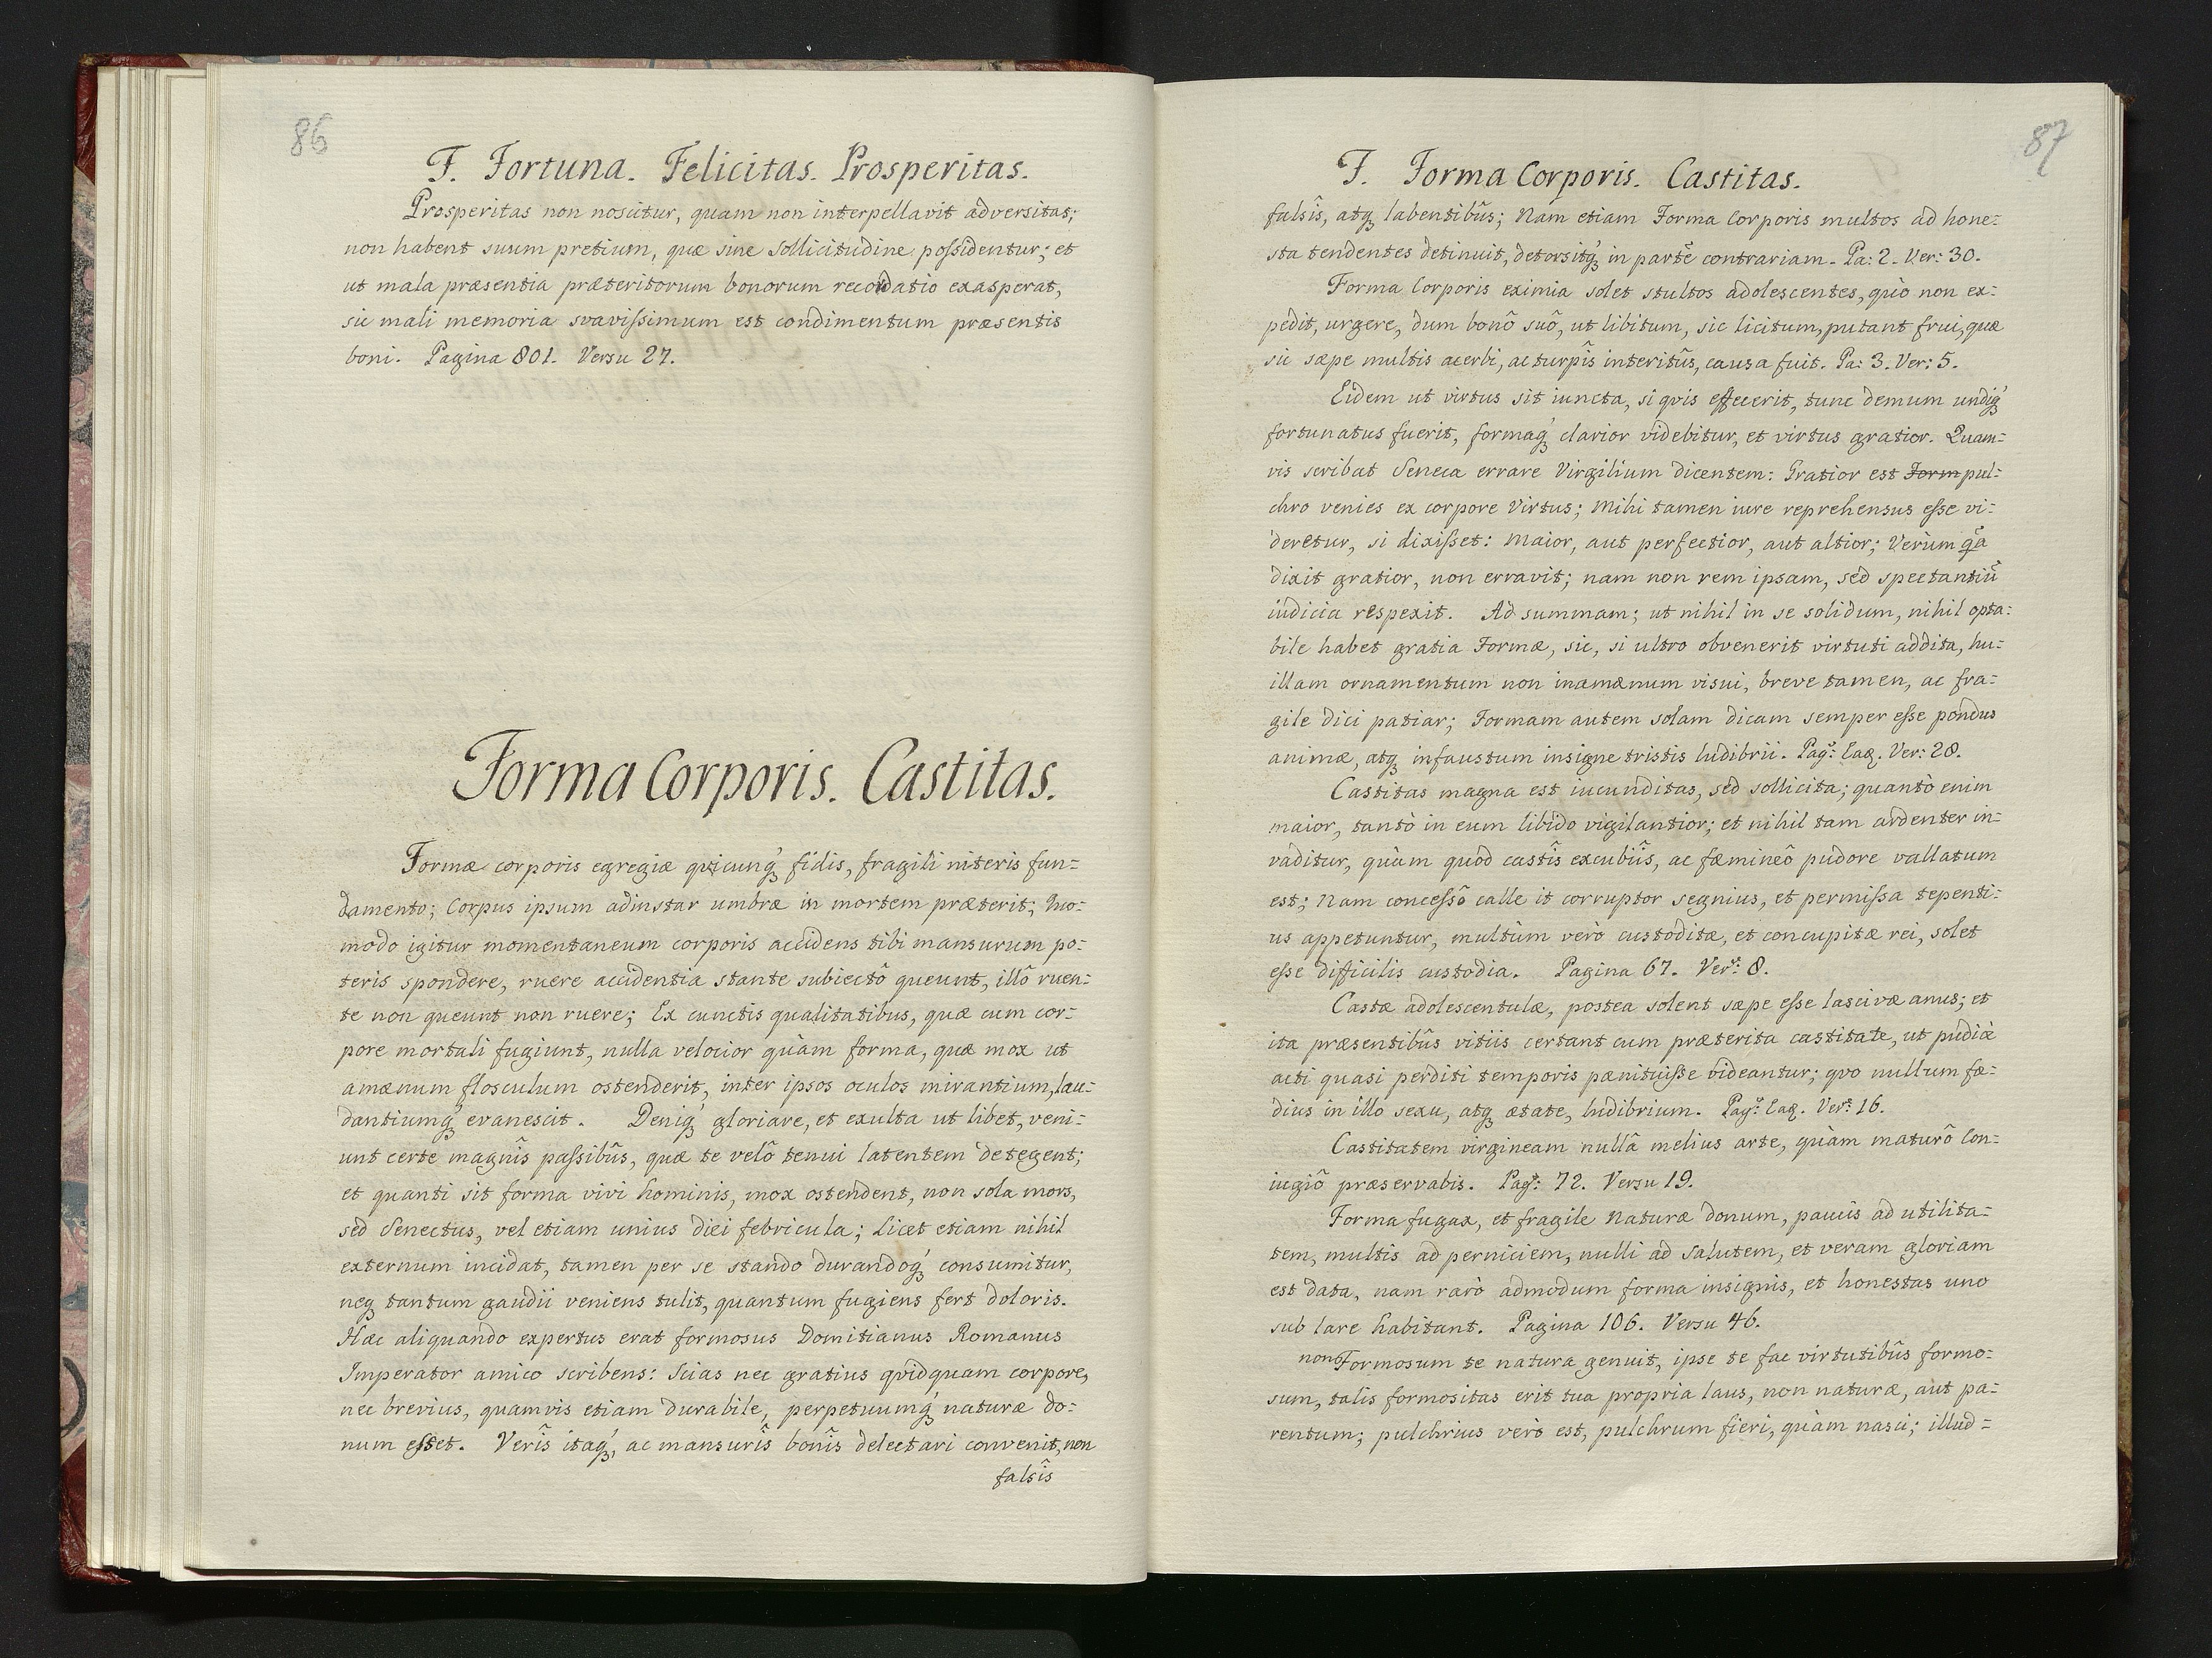 86
F. Fortuna. Felicitas. Prosperitas.
Prosperitas non noscitur, quam non interpellavit adversitas;
non habent suum pretium, quæ sine sollicitudine poſsidentur; et
ut mala præsentia præteritorum bonorum recordatio exasperat,
sic mali memoria svaviſsimum est condimentum præsentis
boni. Pagina 801. Versu 27.
Forma Corporis. Castitas.
Formæ corporis egregiæ quicunq́ꝫ fidis, fragili niteris fun=
damento; Corpus ipsum adinstar umbræ in mortem præterit; Quo=
modo igitur momentaneum corporis accidens tibi mansurum po=
teris spondere, ruere accidentia stante subiectô queunt, illô ruen=
te non queunt non ruere; Ex cunctis qualitatibus, quæ cum cor=
pore mortali fugiunt, nulla velocior quàm forma, quæ mox ut
amænum flosculum ostenderit, inter ipsos oculos mirantium, lau=
dantiumq́ꝫ evanescit. Deniq́ꝫ gloriare, et exulta ut libet, veni=
unt certe magnîs paſsibûs, quæ te velô tenui latentem detegent;
et quanti sit forma vivi hominis, mox ostendent, non sola mors,
sed Senectus, vel etiam unius diei febricula; Licet etiam nihil
externum incidat, tamen per se stando durandoq́ꝫ consumitur,
neqꝫ tantum gaudii veniens tulit, quantum fugiens fert doloris.
Hæc aliquando expertus erat formosus Domitianus Romanus
Imperator amico scribens: Scias nec gratius qvidquam corpore,
nec brevius, quamvis etiam durabile, perpetuumq́ꝫ naturæ do=
num eſset. Verîs itaq́ꝫ, ac mansurîs bonîs delectari convenit, non
falsîs
87
F. Forma Corporis. Castitas.
falsîs, atqꝫ labentibûs; Nam etiam Forma Corporis multos ad hone=
sta tendentes detinuit, detorsitq́ꝫ in partẽ contrariam. Pa: 2. Ver: 30.
Forma Corporis eximia solet stultos adolescentes, quò non ex=
pedit, urgere, dum bonô suô, ut libitum, sic licitum, putant frui, quæ
sic sæpe multis acerbi, ac turpîs interitûs, causa fuit. Pa: 3. Ver: 5.
Eidem ut virtus sit iuncta, si qvis effecerit, tunc demum undiq́ꝫ
fortunatus fuerit, formaq́ꝫ clarior videbitur, et virtus gratior. Quam=
vis scribat Seneca errare Virgilium dicentem: Gratior est Form pul=
chro venies ex corpore Virtus; Mihi tamen iure reprehensus eſse vi=
deretur, si dixiſset: Maior, aut perfectior, aut altior; Verùm q̃a
dixit gratior, non erravit; nam non rem ipsam, sed spectantiũ
iudicia respexit. Ad summam; ut nihil in se solidum, nihil opta=
bile habet gratia Formæ, sic, si ultro obvenerit virtuti addita, hu=
illam ornamentum non inamænum visui, breve tamen, ac fra=
gile dici patiar; Formam autem solam dicam semper eſse pondus
animæ, atqꝫ infaustum insigne tristis ludibrii. Pag: Eaq. Ver: 28.
Castitas magna est iucunditas, sed sollicita; quantò enim
maior, tantò in eum libido vigilantior; et nihil tam ardenter in=
vaditur, quàm quod castîs excubiîs, ac fæmineô pudore vallatum
est; Nam conceſsô calle it corruptor segnius, et permiſsa tepenti=
us appetuntur, multùm verò custoditæ, et concupitæ rei, solet
eſse difficilis custodia. Pagina 67. Ver: 8.
Castæ adolescentulæ, postea solent sæpe eſse lascivæ anus; et
ita præsentibûs vitiis certant cum præterita castitate, ut pudicè
acti quasi perditi temporis pænituiſse videantur; qvo nullum fæ=
dius in illo sexu, atqꝫ ætate, ludibrium. Pag: Eaq. Ver: 16.
Castitatem virgineam nullâ melius arte, quàm maturô Con=
iugiô præservabis. Pag: 72. Versu 19.
Forma fugax, et fragile Naturæ donum, paucis ad utilita=
tem, multis ad perniciem, nulli ad salutem, et veram gloriam
est data, nam rarò admodum forma insignis, et honestas uno
sub lare habitant. Pagina 106. Versu 46.
non Formosum te natura genuit, ipse te fac virtutibûs formo=
sum, talis formositas erit tua propria laus, non naturæ, aut pa=
rentum; pulchrius verò est, pulchrum fieri, quàm nasci; illud=